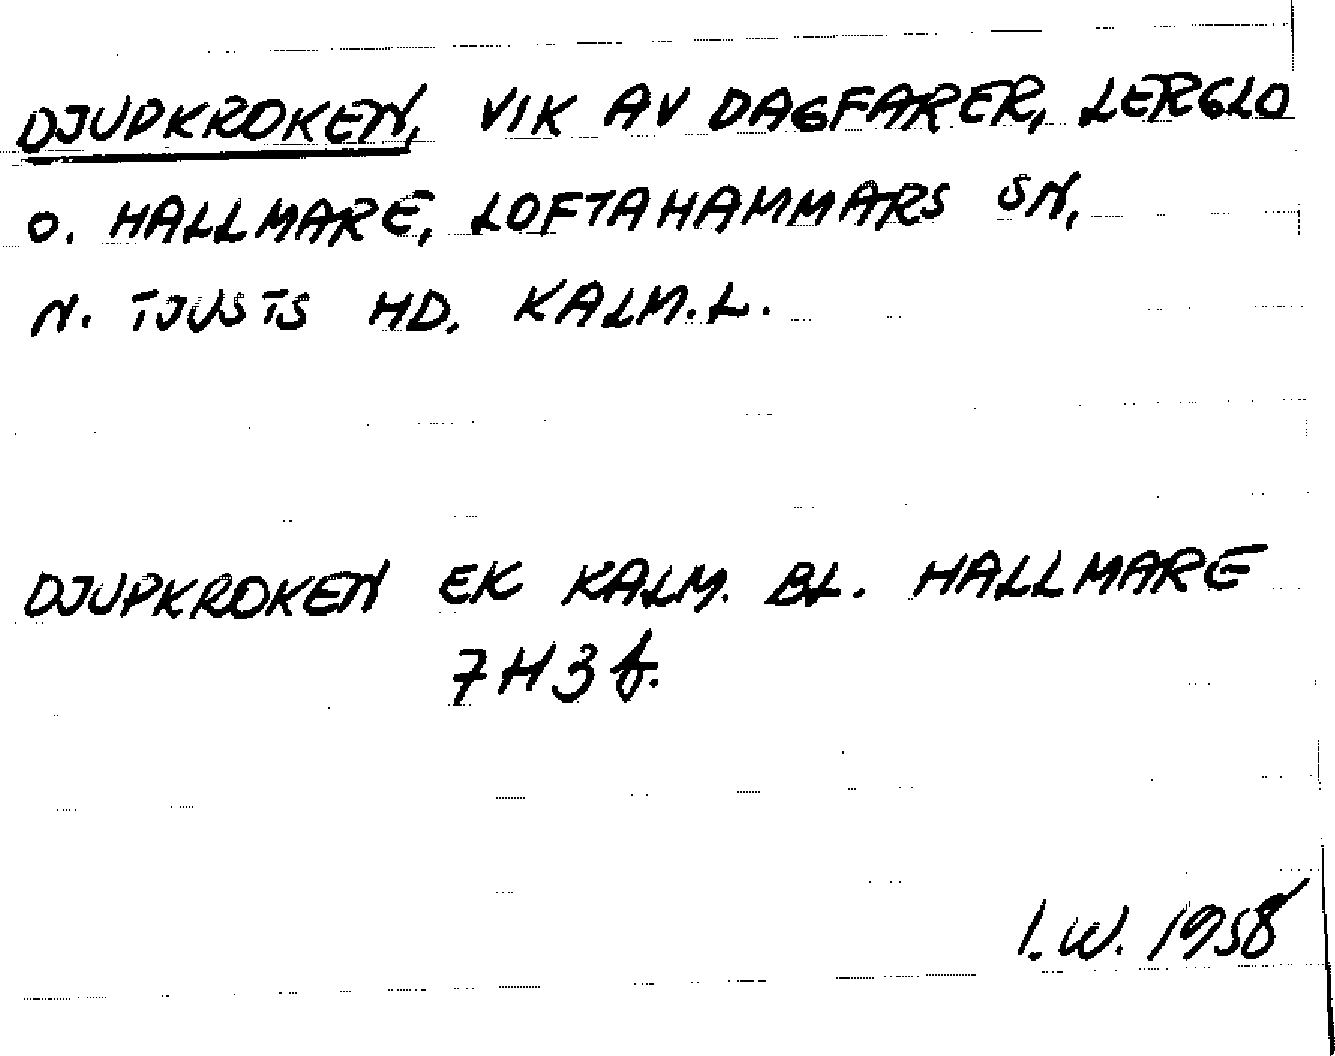 DJUPKROKEN, VIK AV DAGFARER, LERGLO
O. HALLMARE, LOFTAHAMMARS SN,
N. TJUSTS HD. KALM.L.
DJUPKROKEN EK KALM. BL. HALLMARE
7H3f.
I.W. 1958